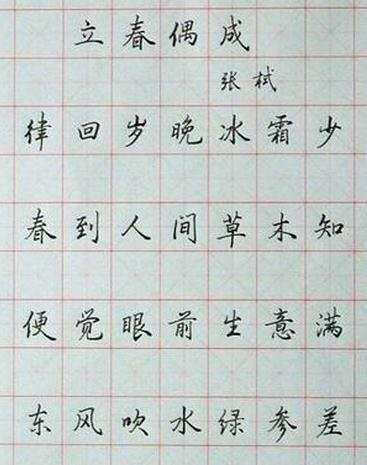 立春偶成
张栻
律回岁晚冰霜少
春到人间草木知
便觉眼前生意满
东风吹水绿参差